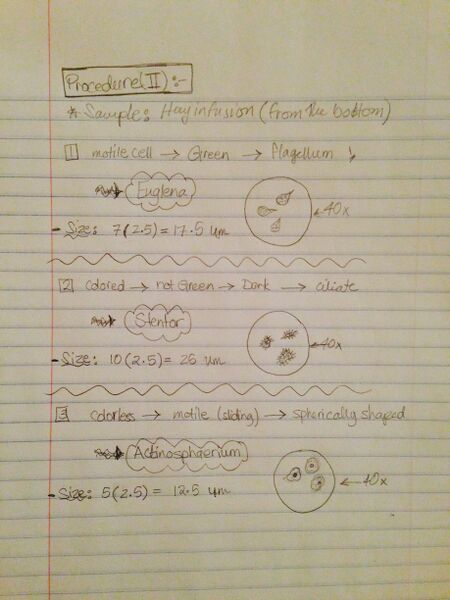 Procedure(II):-
* Sample: Hay infusion (from the bottom)
1 motile cell → Green → flagellum
Euglena
- Size: 7(2.5) = 17.5 um
←40x
2 colored → not Green → Dark → ciliate
Stentor
- Size: 10(2.5) = 25 um
←40x
3 colorless → motile (sliding) → spherically shaped
Actinosphaerium
- Size: 5(2.5) = 12.5 um
←40x